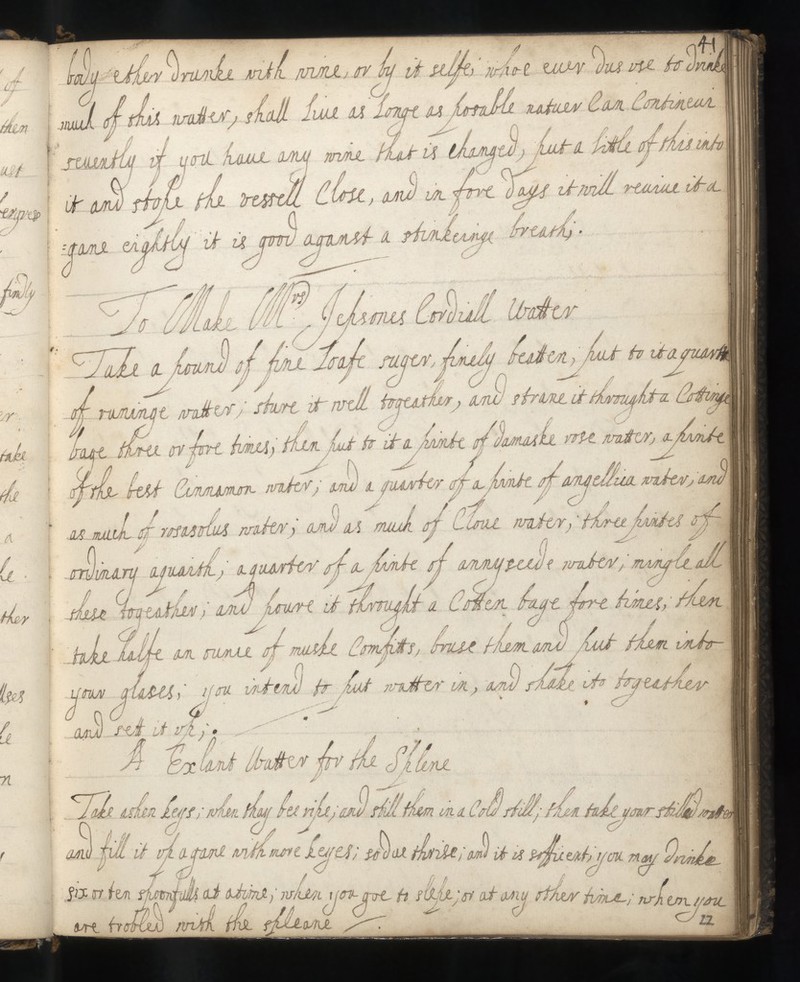 41
body ether drunke with wine, or by it selfe; whoe euer dus vse to drinke
much of this watter, shall Liue as Longe as posable natuer Can Contineui
seuently if you haue any wine that is changed, put a little of this into
it and stope the vessell Close, and in fore days it will reuiue it a
=gane eightly it is good aganst a stinkeinge breath;.
To Make Mrs Jepsones Cordiall Watter
Take a pound of fine Loafe suger, finely beatten; put to it a quarte
of runinge watter; sture it well togeather, and strane it throught a Cottinge
bage three or fore times; then put to it a pinte of damaske rose watter, a pinte
of the best Cinnamon water; and a quarter of a pinte of angellica water; and
as much of rosasolus water; and as much of Cloue water; three pintes of
ordinary aquaith; a quarter of a pinte of annyseede water; mingle all
these togeather; and poure it throught a Cotten bage fore times; then
take halfe an ounce of muske Comfitts, bruse them and put them into
your glases; you intend to put watter in, and shake ito togeather
and sett it vp;.
A Exlant Watter for the Splene
Take ashen keys; when thay bee ripe; and still them in a Cold still; then take your stilled watter
and fill it vp agane with more keyes; so due thrise; and it is sofficent; you may drinke
six or ten spoonfulls at a time; when you goe to slepe; or at any other time; when you
are trobled with the spleane
22
of
then
findly
er
take
the
a
ther